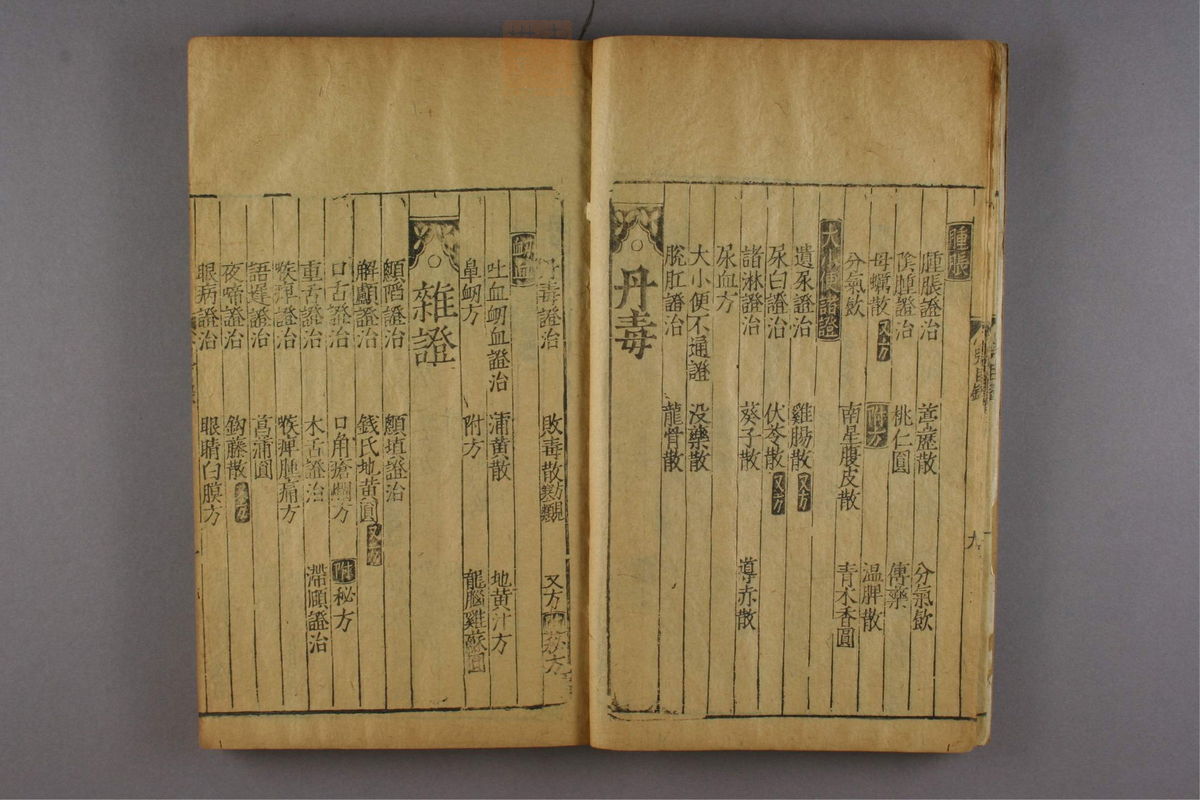 腫脹
腫脹證治 葶藶散 分氣飲
陰腫證治 桃仁圓 傳藥
母蠣散 又方 附方 温脾散
分氣飲 南星腹皮散 青木香圓
大小便諸證
遺尿證治 雞腸散 又方
尿白證治 伏苓散 又方
諸淋證治 葵子散 導赤散
尿血方
大小便不通證 没藥散
脫肛證治 龍骨散
丹毒
丹毒證治 敗毒散 又方
衂血
吐血衂血證治 蒲黄散 地黄汁方
鼻衂方 附方 龍腦雞蘇圓
雜證
顖陷證治 顖填證治
解顱證治 錢氏地黄圓 又方
口舌證治 口角瘡爛方 附秘方
重舌證治 木舌證治 滯頤證治
喉痺證治 喉痺腫痛方
語遲證治 菖蒲圓
夜啼證治 鈎藤散
眼病證治 眼睛白膜方